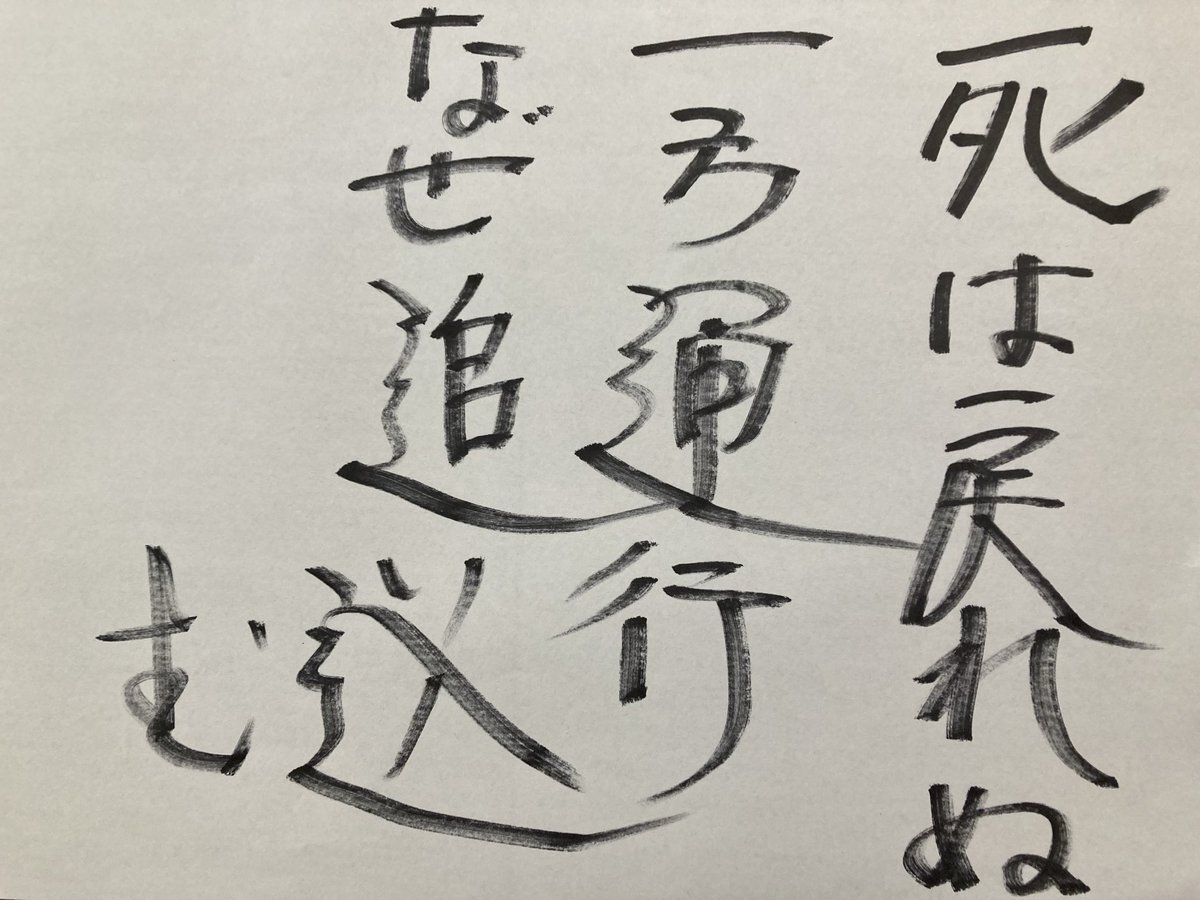 死は戻れぬ
一方運行
なぜ追込む